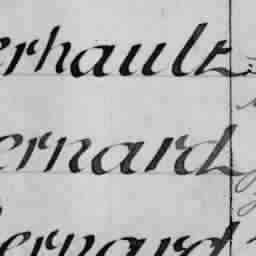 erhault
ernard
Bernard